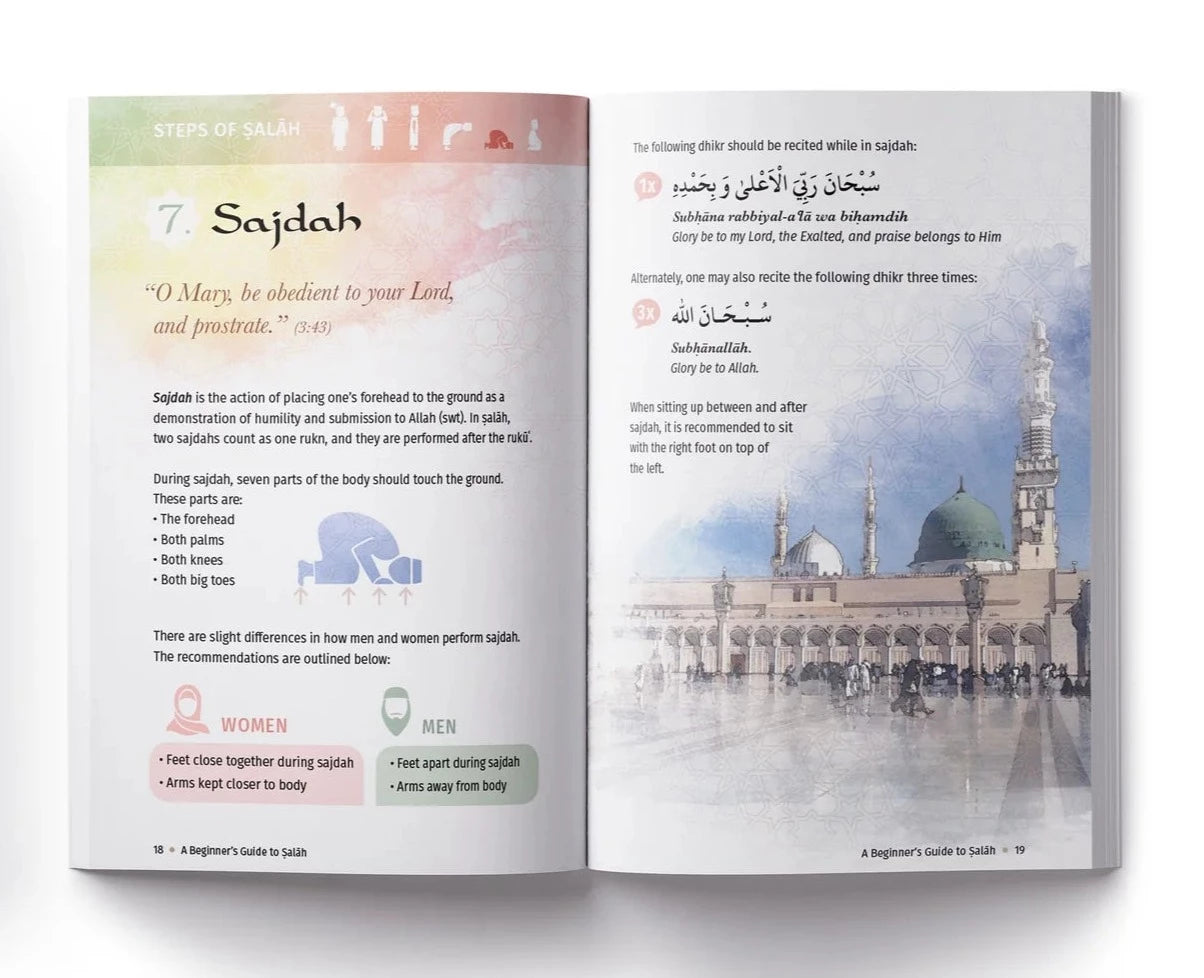 STEPS OF ṢALĀH
7. Sajdah
“O Mary, be obedient to your Lord,
and prostrate.” (3:43)
Sajdah is the action of placing one’s forehead to the ground as a
demonstration of humility and submission to Allah (swt). In ṣalāh,
two sajdahs count as one rukn, and they are performed after the rukūʿ.
During sajdah, seven parts of the body should touch the ground.
These parts are:
• The forehead
• Both palms
• Both knees
• Both big toes
There are slight differences in how men and women perform sajdah.
The recommendations are outlined below:
WOMEN
• Feet close together during sajdah
• Arms kept closer to body
MEN
• Feet apart during sajdah
• Arms away from body
18 • A Beginner’s Guide to Ṣalāh
The following dhikr should be recited while in sajdah:
1x سُبْحَانَ رَبِّيَ الْاَعْلىٰ وَ بِحَمْدِهِ
Subḥāna rabbiyal-aʿlā wa biḥamdih
Glory be to my Lord, the Exalted, and praise belongs to Him
Alternately, one may also recite the following dhikr three times:
3x سُبْحَانَ اللّٰه
Subḥānallāh.
Glory be to Allah.
When sitting up between and after
sajdah, it is recommended to sit
with the right foot on top of
the left.
A Beginner’s Guide to Ṣalāh • 19